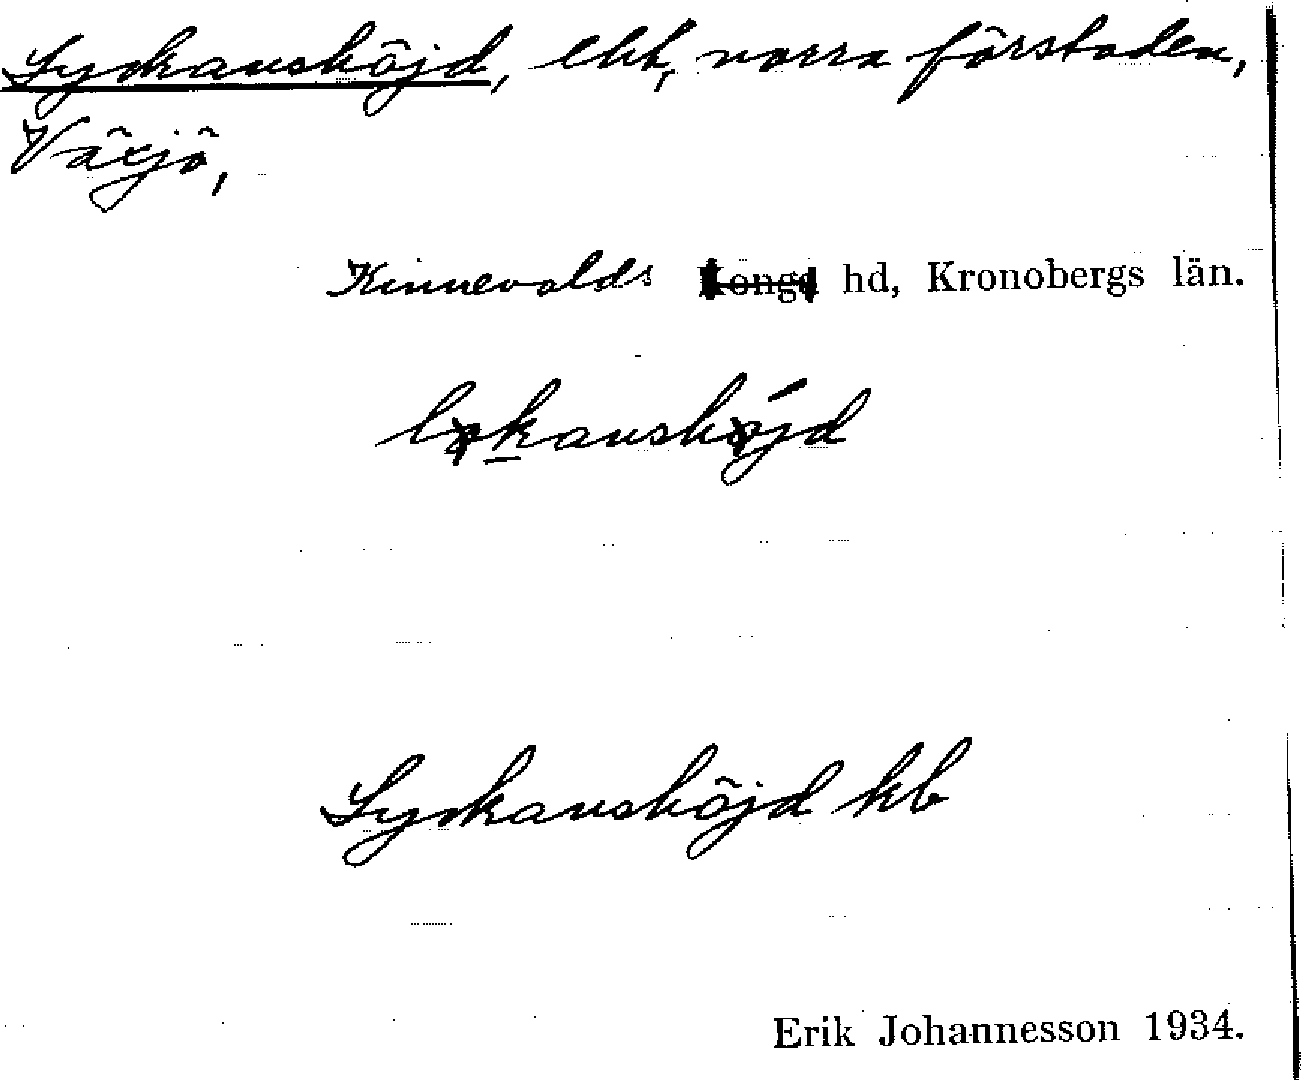 Lyckanshöjd, lht, norra förstaden,
Växjö,
Kinnevalds Konga hd, Kronobergs län.
Lyckanshöjd kb
Erik Johannesson 1934.